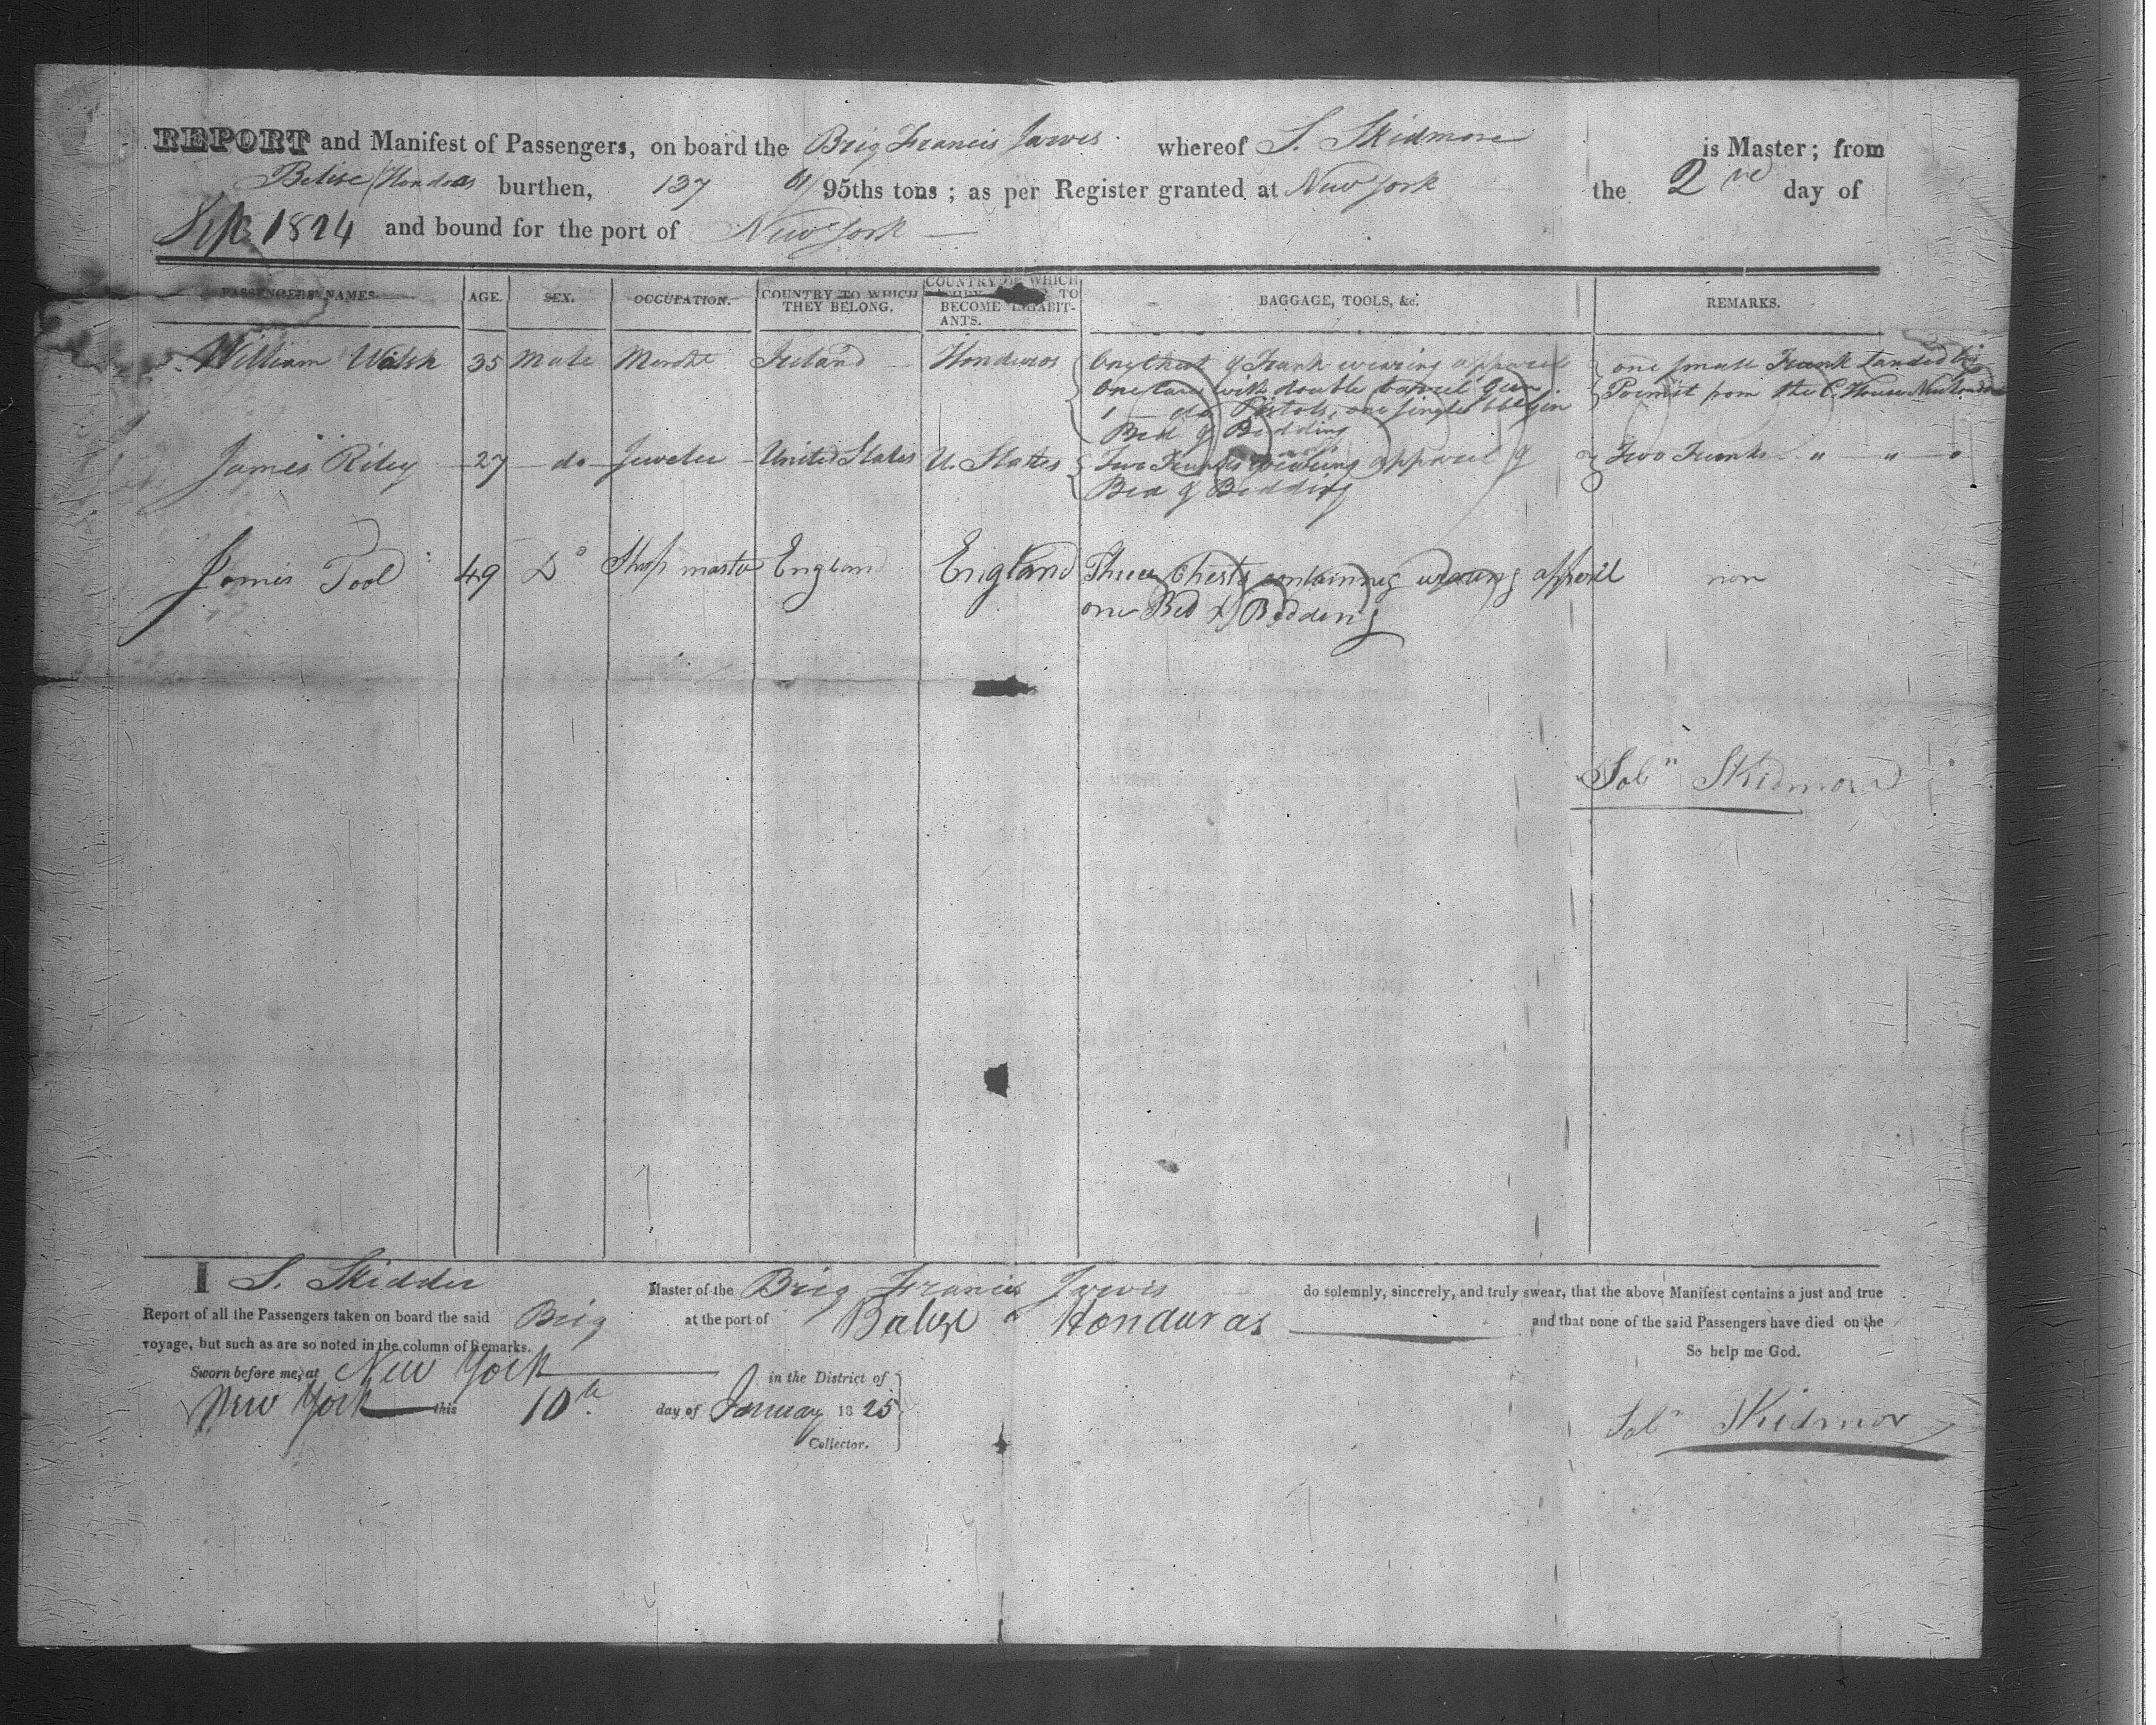 REPORT and Manifest of Passengers, on board the Brig Francis Jarvis whereof S. Skidmore is Master; from
Belise Hondas burthen, 137 61/95ths tons; as per Register granted at New York the 2nd day of
Sep 1824 and bound for the port of New York
PASSENGERS' NAMES. AGE. SEX. OCCUPATION. COUNTRY TO WHICH THEY BELONG. COUNTRY OF WHICH TO BECOME INHABITANTS. BAGGAGE, TOOLS, &c. REMARKS.
William Walsh 35 Male Mercht Ireland Honduras One Chest & Trunk wearing apparel one small Trunk Landed by
One Case with double barrel Gun. Permit from the C. House New London
1 do Pistols, one single bbl gun
Bed & Bedding
James Riley 27 do Jeweler United States U States Two Trunks wearing apparel & Two Trunks " "
Bed & Bedding
James Tool 49 Do Ship master England England Three Chests containing wearing apperil non
one Bed & Bedding
Soln Skidmore
I S. Skidder Master of the Brig Francis Jarvis do solemnly, sincerely, and truly swear, that the above Manifest contains a just and true
Report of all the Passengers taken on board the said Brig at the port of Balize Honduras and that none of the said Passengers have died on the
voyage, but such as are so noted in the column of Remarks. So help me God.
Sworn before me, at New York in the District of
New York this 10th day of January 1825
Collector.
Soln Skidmor